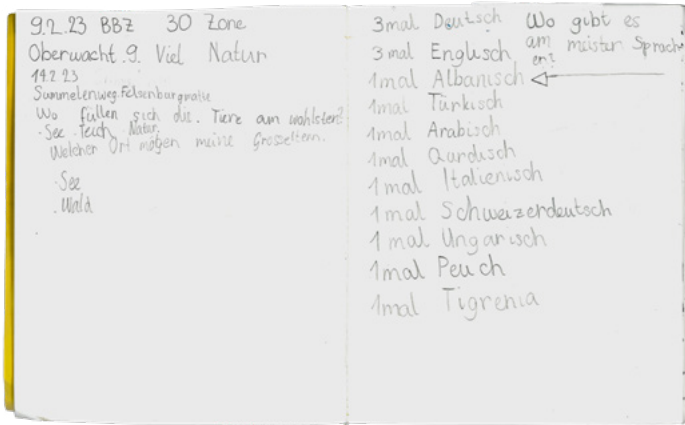 9.2.23 BBZ 30 Zone
Oberwacht.9. Viel Natur
14.2.23
Summelenweg.Felsenburgmatte
Wo füllen sich die. Tiere am wohlsten?
·See Teich Natur
Welcher Ort mögen meine Grosseltern.
·See
.Wald
3mal Deutsch
3mal Englisch
1mal Albanisch
1mal Türkisch
1mal Arabisch
1mal Qurdisch
1mal Italienisch
1mal Schweizerdeutsch
1mal Ungarisch
1mal Peuch
1mal Tigrenia
Wo gibt es
am meisten Sprach
en?